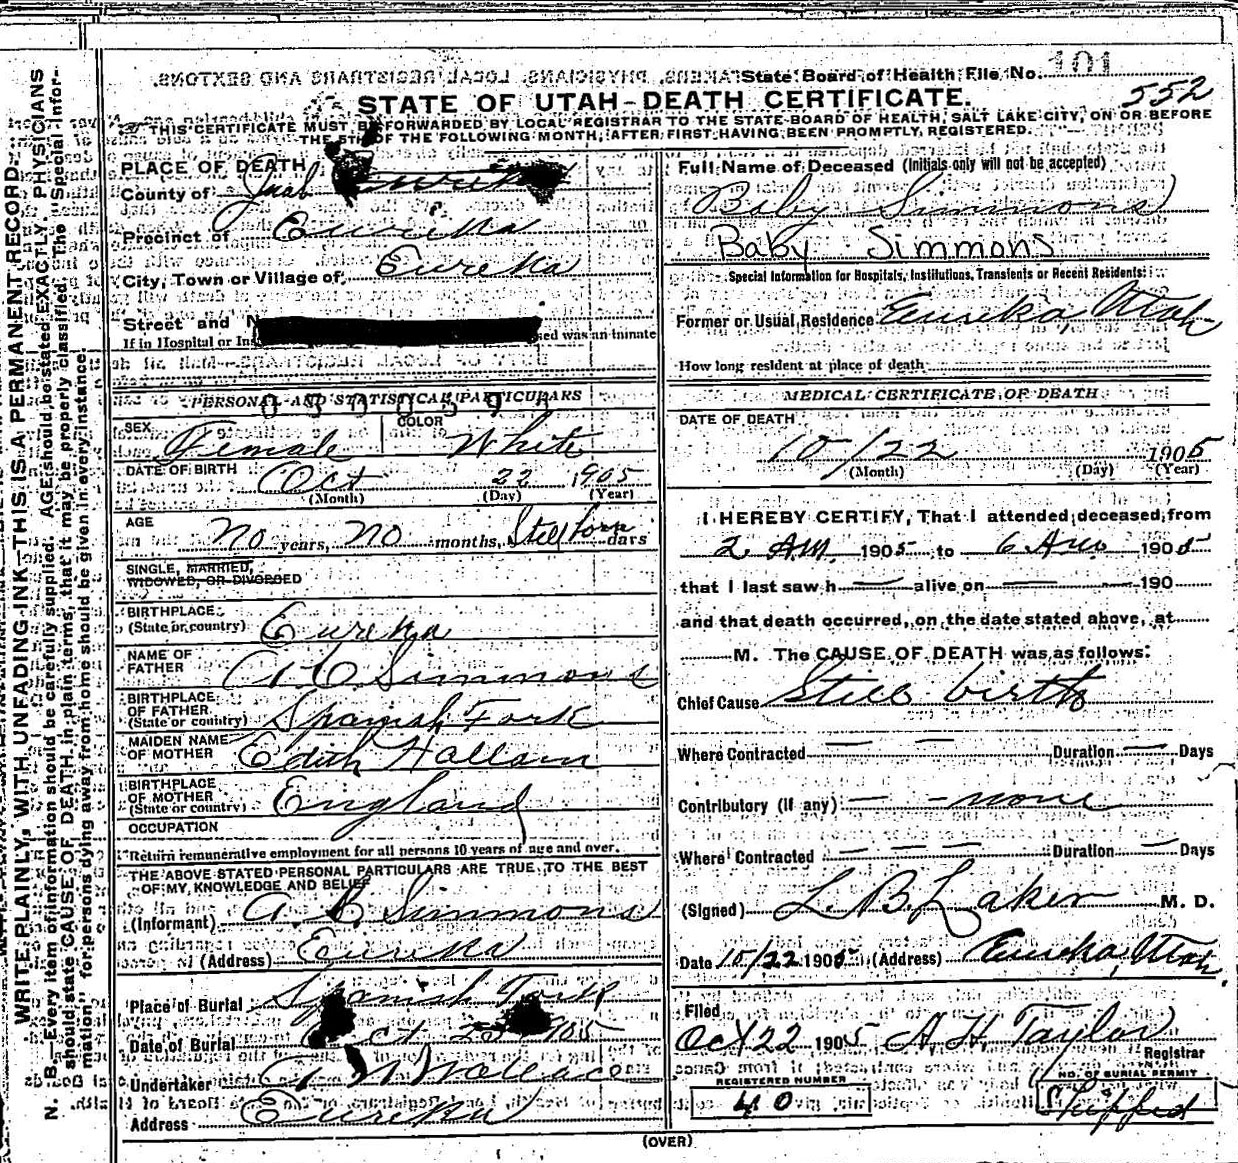 State Board of Health File No. 101
552
STATE OF UTAH-DEATH CERTIFICATE.
THIS CERTIFICATE MUST BE FORWARDED BY LOCAL REGISTRAR TO THE STATE BOARD OF HEALTH, SALT LAKE CITY, ON OR BEFORE
THE 5TH OF THE FOLLOWING MONTH, AFTER FIRST HAVING BEEN PROMPTLY REGISTERED.
WRITE PLAINLY, WITH UNFADING INK—THIS IS A PERMANENT RECORD.
N. B.—Every item of information should be carefully supplied. AGE should be stated EXACTLY. PHYSICIANS
should state CAUSE OF DEATH in plain terms, that it may be properly classified. The "Special Infor-
mation" for persons dying away from home should be given in every instance.
PLACE OF DEATH
County of Juab
Precinct of Eureka
City, Town or Village of Eureka
Street and
If in Hospital or Ins
ed was an inmate
PERSONAL AND STATISTICAL PARTICULARS
SEX Female COLOR White
DATE OF BIRTH Oct 22 1905
(Month) (Day) (Year)
AGE
No years, No months, Stillborn days
SINGLE, MARRIED,
WIDOWED, OR DIVORCED
BIRTHPLACE
(State or country) Eureka
NAME OF
FATHER A C Simmons
BIRTHPLACE
OF FATHER
(State or country) Spanish Fork
MAIDEN NAME
OF MOTHER Edith Hallam
BIRTHPLACE
OF MOTHER
(State or country) England
OCCUPATION
Return remunerative employment for all persons 10 years of age and over.
THE ABOVE STATED PERSONAL PARTICULARS ARE TRUE TO THE BEST
OF MY KNOWLEDGE AND BELIEF
(Informant) A. C. Simmons
(Address) Eureka
Place of Burial Spanish Fork
Date of Burial Oct 23 1905
Undertaker Wallace
Address Eureka
Full Name of Deceased (Initials only will not be accepted)
Baby Simmons
Baby Simmons
Special Information for Hospitals, Institutions, Transients or Recent Residents:
Former or Usual Residence Eureka, Utah
How long resident at place of death
MEDICAL CERTIFICATE OF DEATH
DATE OF DEATH
10/22 1905
(Month) (Day) (Year)
I HEREBY CERTIFY, That I attended deceased from
2 AM. 1905 to 6 AM 1905
that I last saw h— alive on — 190
and that death occurred, on the date stated above, at
M. The CAUSE OF DEATH was as follows:
Chief Cause Still birth
Where Contracted — — Duration — Days
Contributory (if any) — - none
Where Contracted — — — Duration — Days
(Signed) L. B. Laker M. D.
Date 10/22 1905 (Address) Eureka, Utah.
Filed
Oct 22 1905 A. H. Taylor
Registrar
REGISTERED NUMBER
40
NO. OF BURIAL PERMIT
Shipped
(OVER)